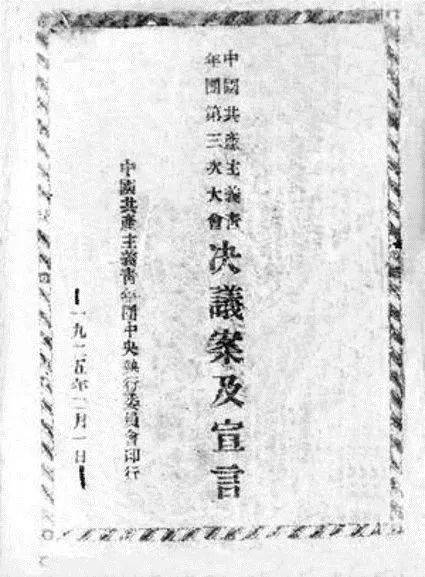 中國共產主義青
年團第三次大會
决議案及宣言
中國共產主義青年團中央執行委員會印行
一九二五年二月一日